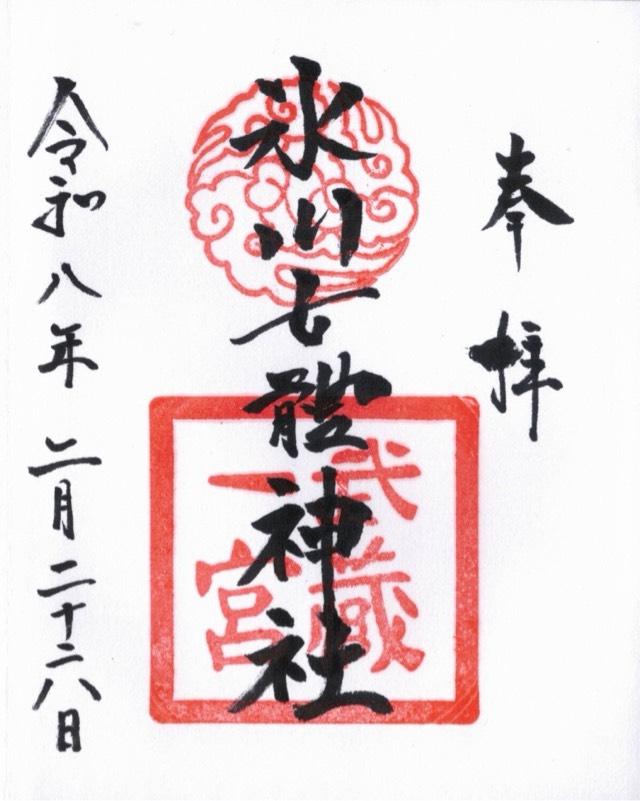 奉拝
氷川女體神社
武蔵
一宮
令和八年二月二十六日